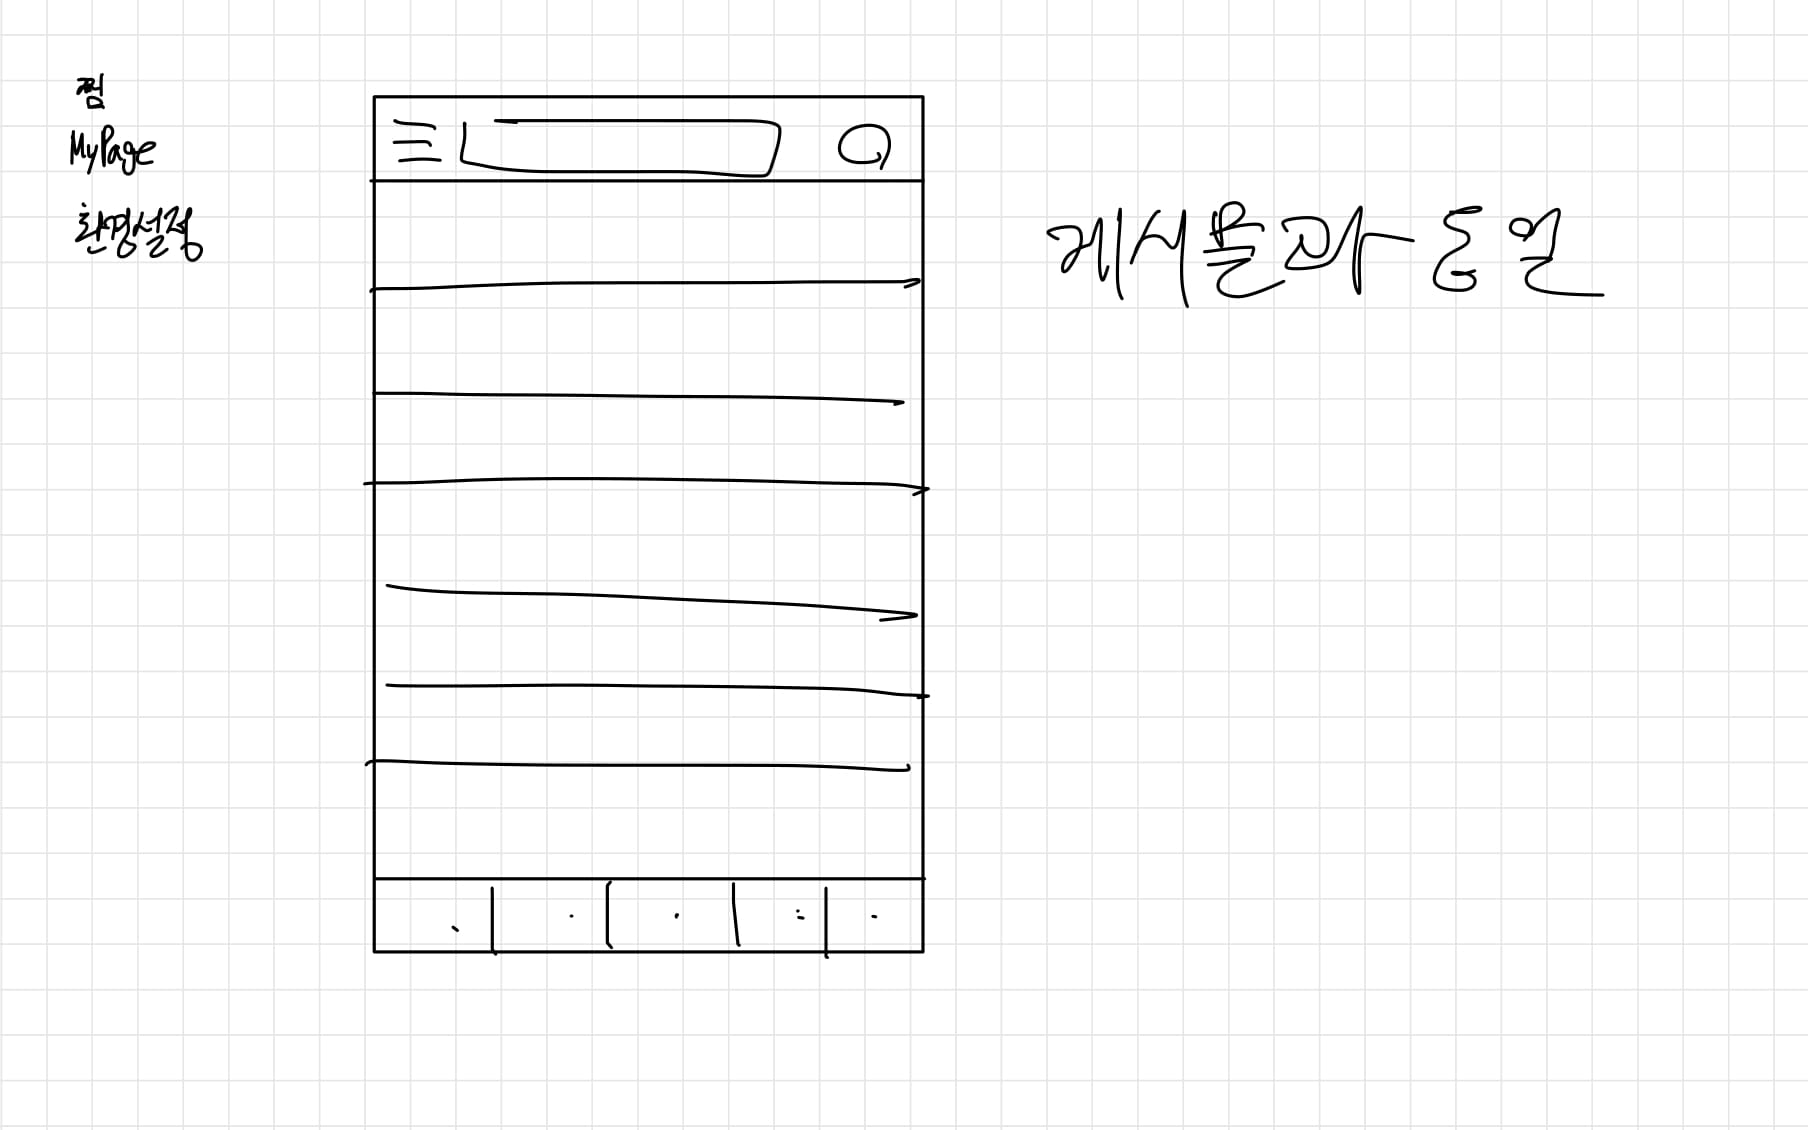 찜
MyPage
환경설정
게시물과 동일